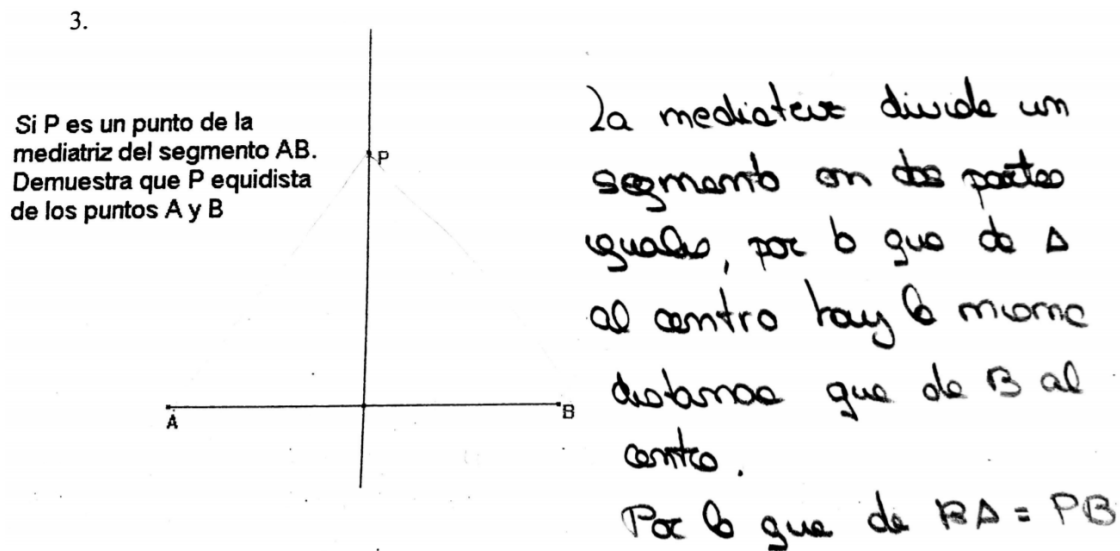 3.
Si P es un punto de la
mediatriz del segmento AB.
Demuestra que P equidista
de los puntos A y B
P
A
B
La mediatriz divide un
segmento en dos partes
iguales, por lo que de A
al centro hay la misma
distancia que de B al
centro.
Por lo que de PA = PB